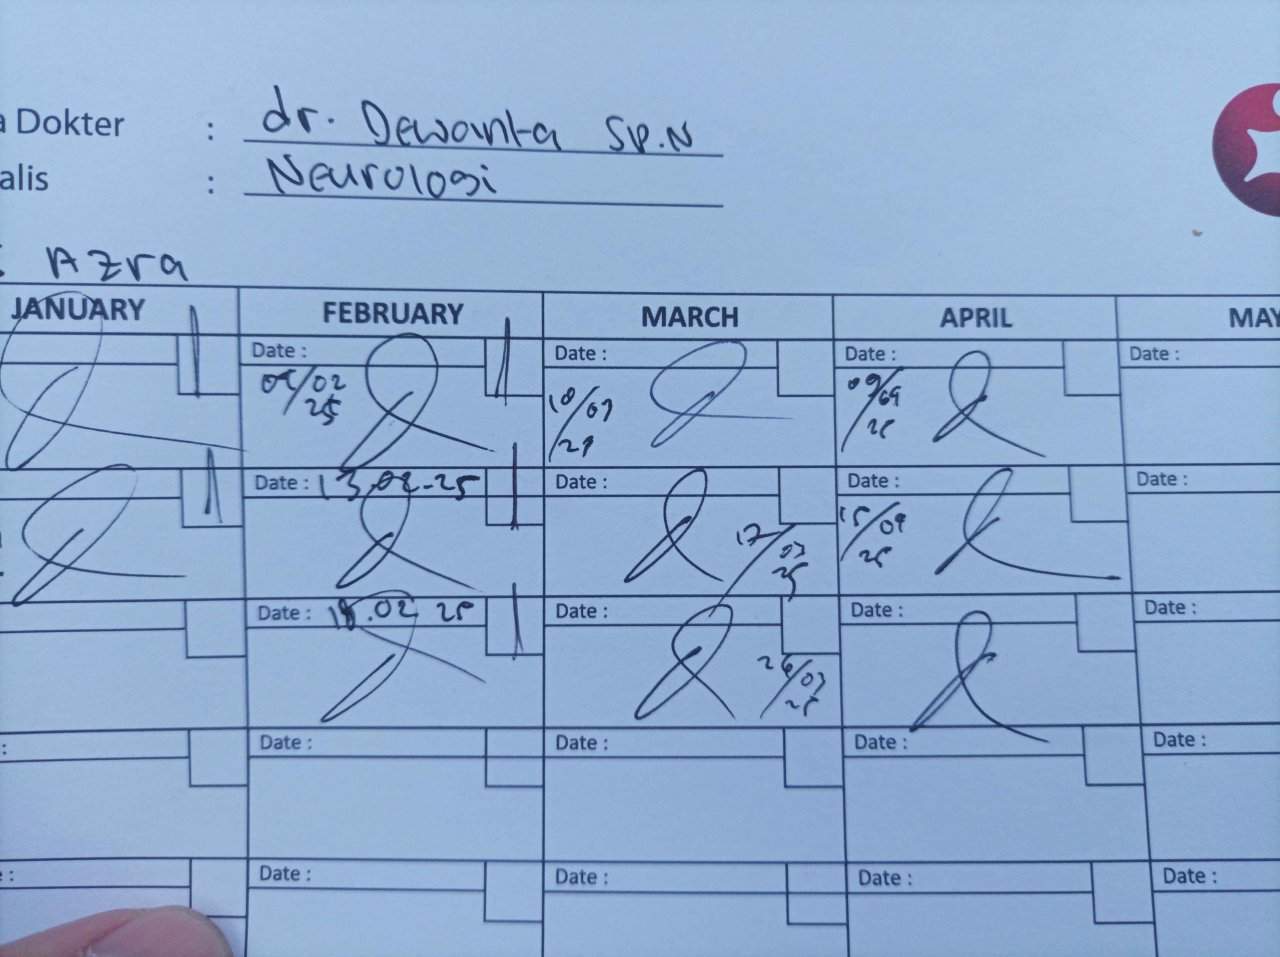 a Dokter : dr. Dewanta SP.N
alis : Neurologi
: Azra
JANUARY FEBRUARY MARCH APRIL MAY
Date : Date : Date : Date :
/02 25 10/03 09/
Date : 13.02-25 Date : Date : Date :
17/03 25 15/
Date : 18.02 25 Date : Date : Date :
26/03 25
: Date : Date : Date : Date :
: Date : Date : Date : Date :